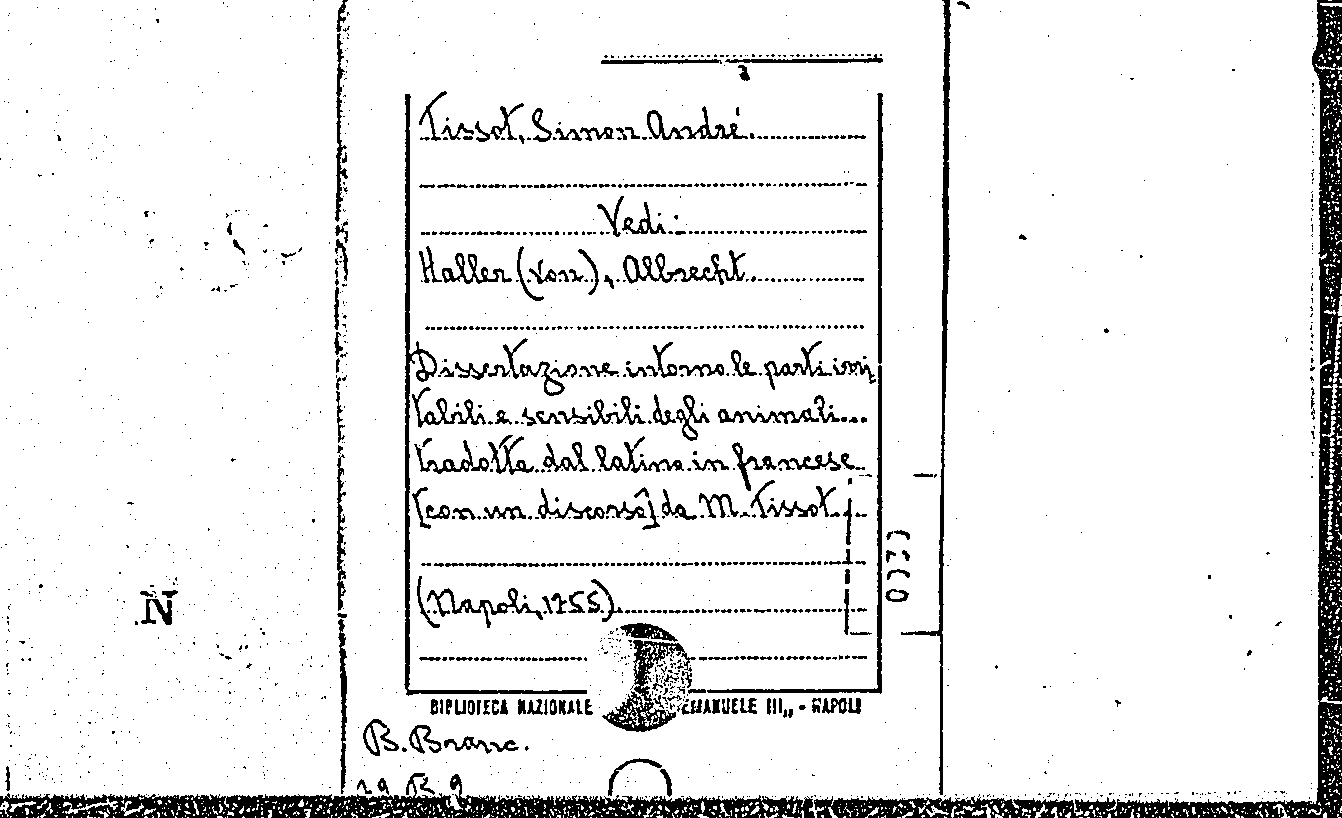 Tissot, Simon André.
Vedi:
Haller (von), Albrecht.
Dissertazione intorno le parti irri
tabili e sensibili degli animali...
tradotta dal latino in francese
[con un discorso] da M. Tissot...
(Napoli, 1755).
BIBLIOTECA NAZIONALE EMANUELE III,, - NAPOLI
B. Branc.
N